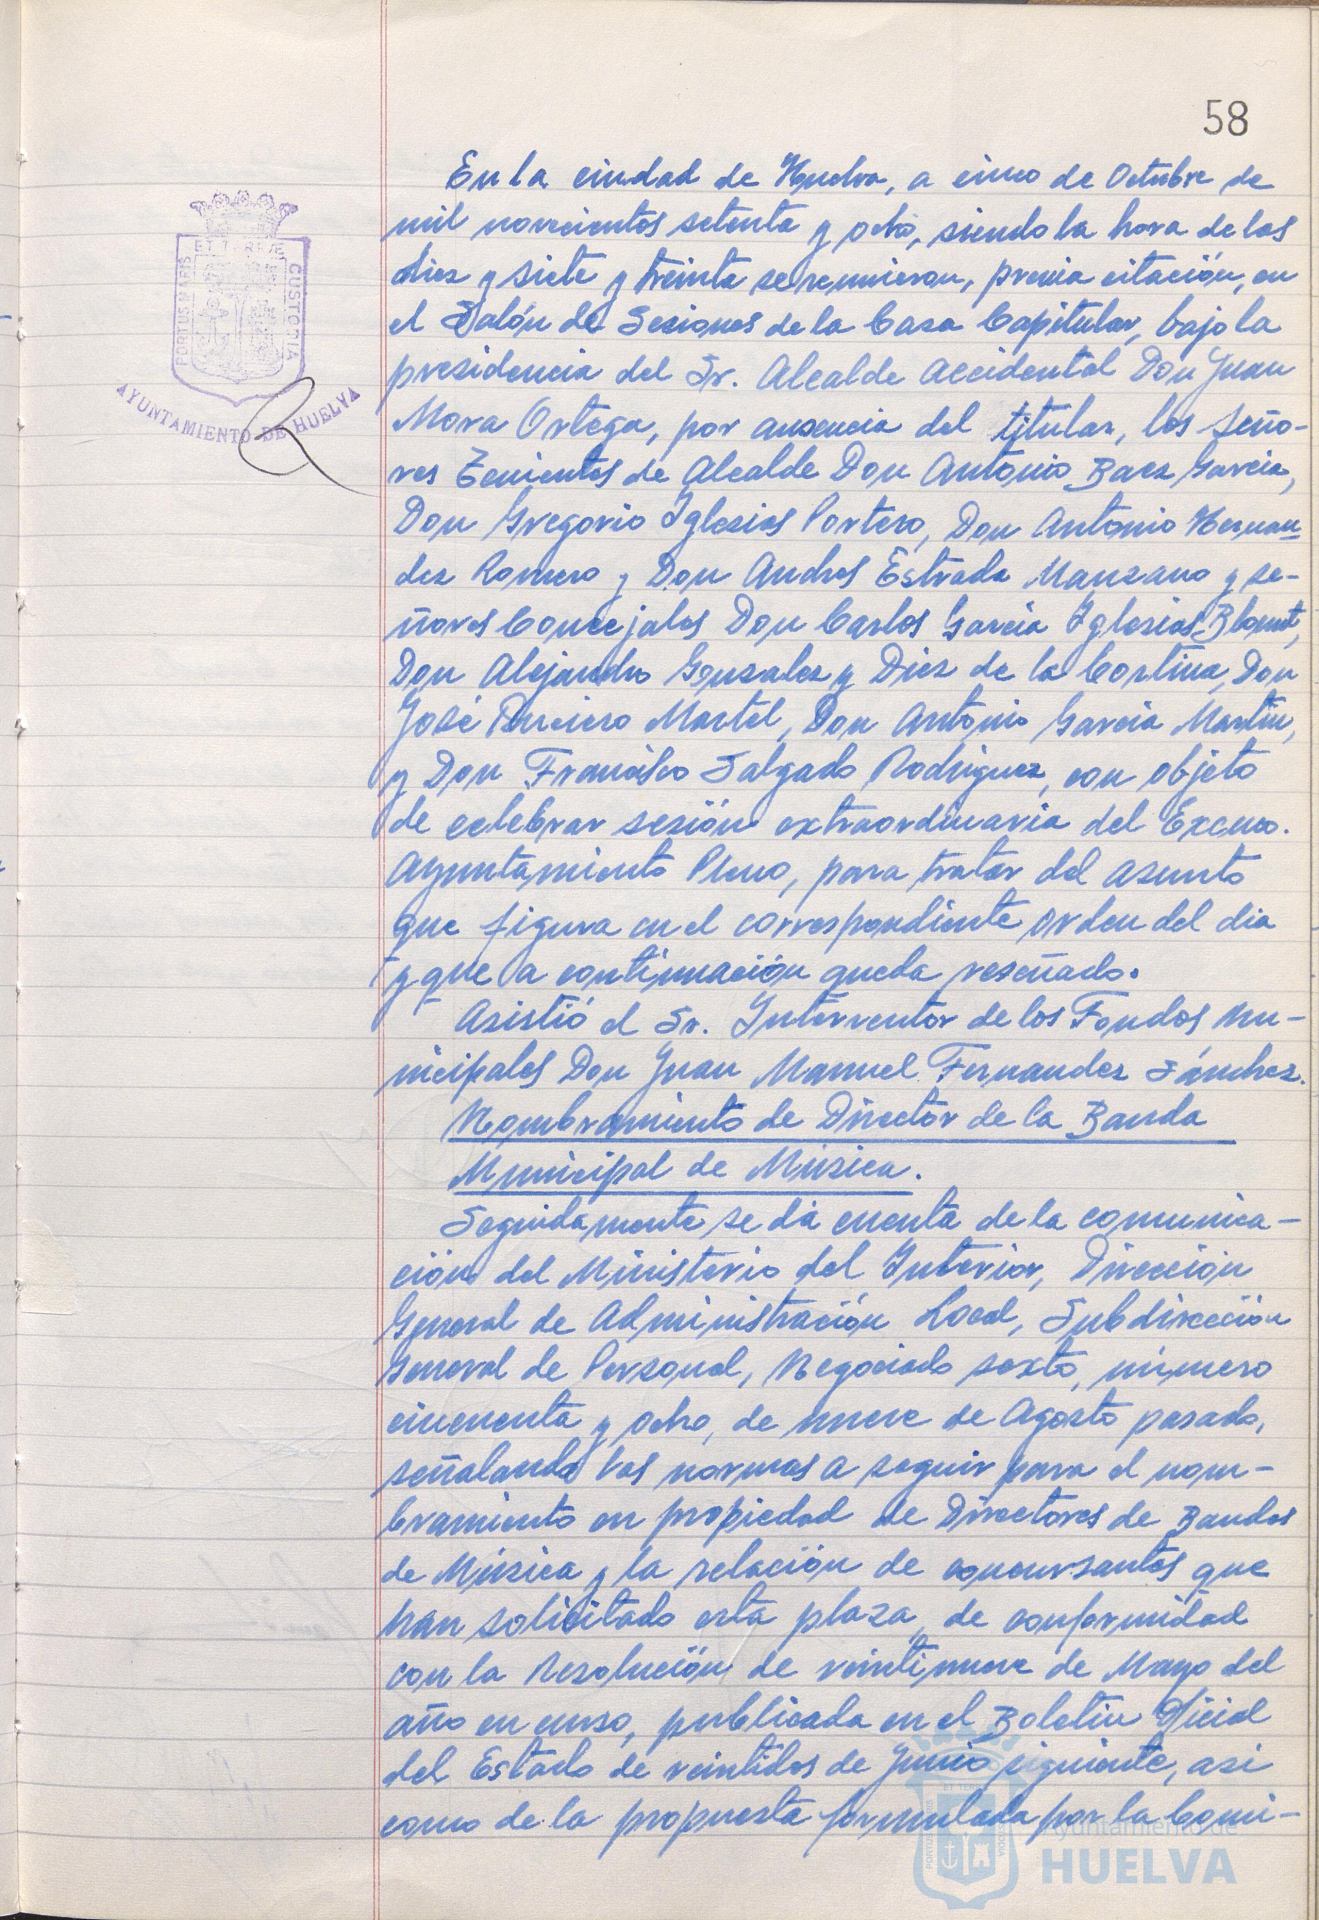 58
En la ciudad de Huelva, a cinco de Octubre de
mil novecientos setenta y ocho, siendo la hora de las
diez y siete y treinta se reunieron, previa citación, en
el Salón de Sesiones de la Casa Capitular, bajo la
presidencia del Sr. Alcalde Accidental Don Juan
Mora Ortega, por ausencia del titular, los Seño-
res Tenientes de Alcalde Don Antonio Baez Garcia,
Don Gregorio Iglesias Portero, Don Antonio Hernan-
dez Romero y Don Andres Estrada Manzano y se-
ñores Concejales Don Carlos Garcia Iglesias Blount,
Don Alejandro Gonzalez y Diez de la Cortina, Don
José Martel, Don Antonio Garcia Martin,
y Don Francisco Salgado Rodriguez, con objeto
de celebrar sesión extraordinaria del Excmo.
Ayuntamiento Pleno, para tratar del asunto
que figura en el correspondiente orden del dia
y que a continuación queda reseñado.
Asistió el Sr. Interventor de los Fondos Mu-
nicipales Don Juan Manuel Fernandez Sánchez.
Nombramiento de Director de la Banda
Municipal de Música.
Seguidamente se dá cuenta de la comunica-
ción del Ministerio del Interior, Dirección
General de Administración Local, Subdirección
General de Personal, Negociado sexto, número
cincuenta y ocho, de nueve de Agosto pasado,
señalando las normas a seguir para el nom-
bramiento en propiedad de Directores de Bandas
de Música y la relación de concursantes que
han solicitado esta plaza, de conformidad
con la Resolución de veintinueve de Mayo del
año en curso, publicada en el Boletin Oficial
del Estado de veintidos de Junio siguiente, asi
como de la propuesta formulada por la Comi-
PORTUS MARIS ET TERRE CUSTODIA
AYUNTAMIENTO DE HUELVA
Ayuntamiento de
HUELVA